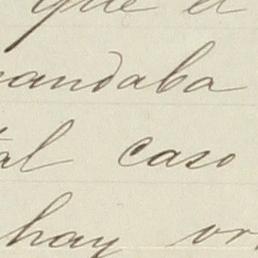 que el
mandaba
tal caso
hay or